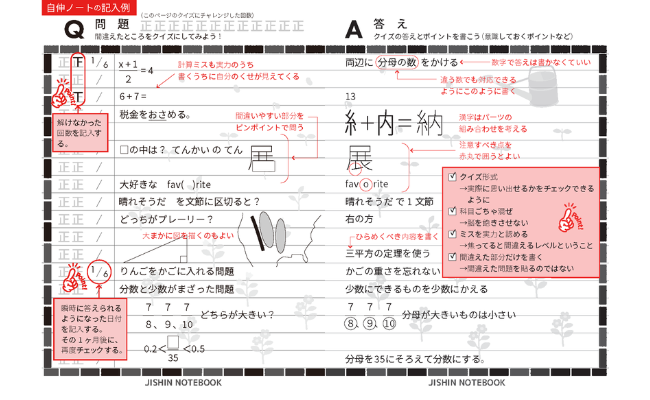 自伸ノートの記入例
Q 問題
(このページのクイズにチャレンジした回数)
正正正正正正正正正正正正正正正
間違えたところをクイズにしてみよう！
A 答え
クイズの答えとポイントを書こう（意識しておくポイントなど）
正下 1/6
x+1/2=4
計算ミスも実力のうち
書くうちに自分のくせが見えてくる
両辺に分母の数をかける
数字で答えは書かなくていい
違う数でも対応できる
ようにこのように書く
正下
解けなかった
回数を記入す
る。
6+7=
13
税金をおさめる。
間違いやすい部分を
ピンポイントで問う
糸＋内＝納
漢字はパーツの
組み合わせを考える
□の中は？ てんかい の てん
展
展
注意すべき点を
赤丸で囲うとよい
大好きな fav( )rite
favorite
☑クイズ形式
→実際に思い出せるかをチェックできる
ように
☑科目ごちゃ混ぜ
→脳を飽きさせない
☑ミスを実力と認める
→焦ってると間違えるレベルということ
☑間違えた部分だけを書く
→間違えた問題を貼るのではない
point!
晴れそうだ を文節に区切ると？
晴れそうだ で1文節
どっちがプレーリー？
右の方
大まかに図を描くのもよい
ひらめくべき内容を書く
三平方の定理を使う
point!
1/6
りんごをかごに入れる問題
かごの重さを忘れない
分数と少数がまざった問題
少数にできるものを少数にかえる
瞬時に答えられる
ようになった日付
を記入する。
その1ヶ月後に、
再度チェックする。
7/8、7/9、7/10 どちらが大きい？
7/8、7/9、7/10 分母が大きいものは小さい
0.2＜□/35＜0.5
分母を35にそろえて分数にする。
JISHIN NOTEBOOK
JISHIN NOTEBOOK